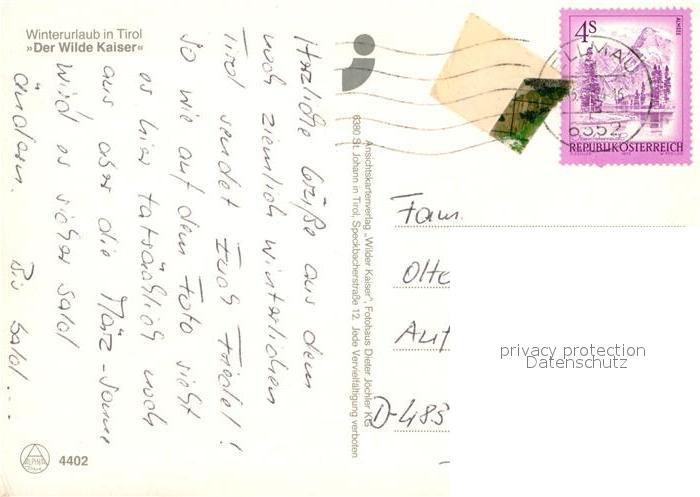 Winterurlaub in Tirol
»Der Wilde Kaiser«
Herzliche Grüße aus dem
noch ziemlich winterlichen
Tirol sendet Euch Friedel!
So wie auf dem Foto sieht
es hier tatsächlich noch
aus aber die März-Sonne
wird es sicher bald
ändern. Bis bald...
ALPINA
4402
Ansichtskartenverlag „Wilder Kaiser", Fotohaus Dieter Jöchler KG
6380 St. Johann in Tirol, Speckbacherstraße 12. Jede Vervielfältigung verboten
4S
ALMSEE
REPUBLIK ÖSTERREICH
ELLMAU
6352
Fam.
Otto
D-483
privacy protection
Datenschutz